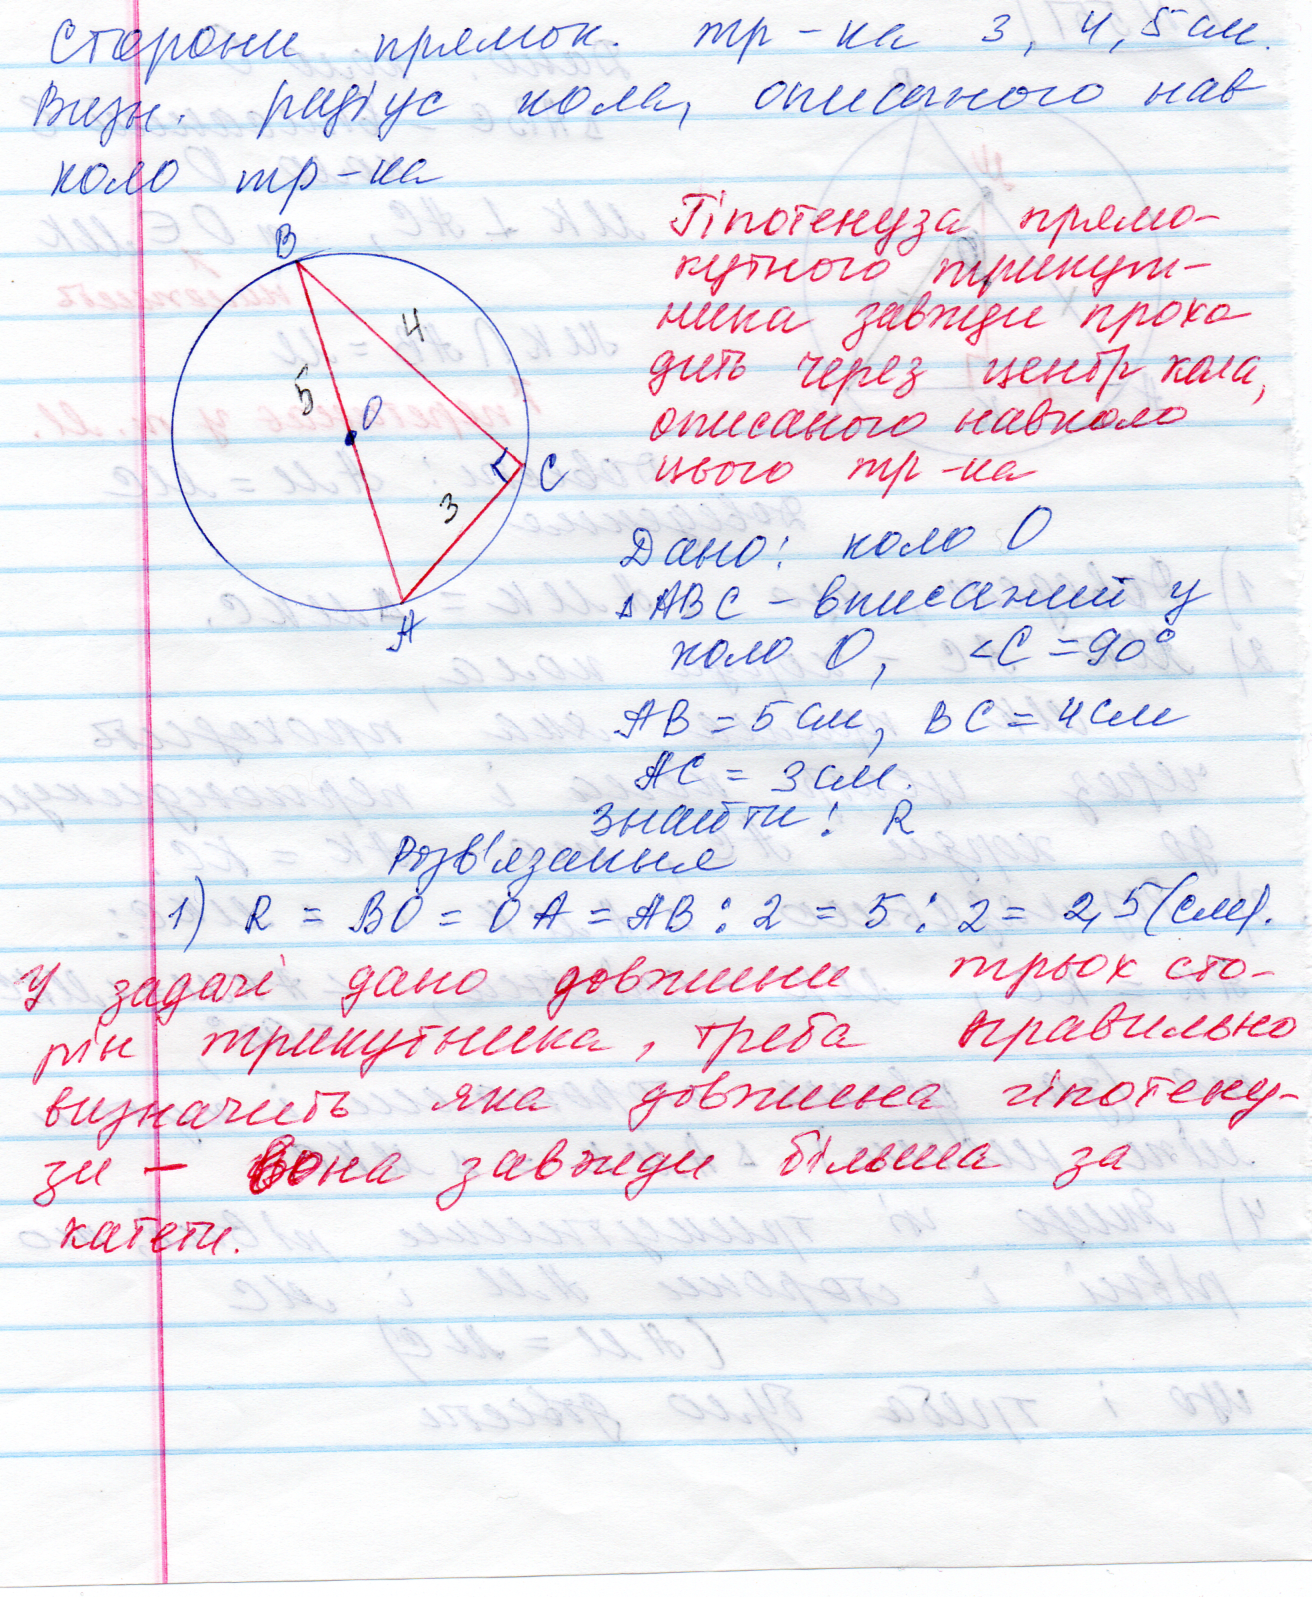 Сторони прямок. тр-ка 3, 4, 5 см.
Визн. радіус кола, описаного нав
коло тр-ка
B
4
5
O
C
3
A
Гіпотенуза прямо-
кутного трикут-
ника завжди прохо
дить через центр кола,
описаного навколо
цього тр-ка
Дано: коло O
△ABC - вписаний у
коло O, <C = 90°
AB = 5 см, BC = 4 см
AC = 3 см.
Знайти: R
Розв'язання
1) R = BO = OA = AB : 2 = 5 : 2 = 2,5 (см).
У задачі дано довжини трьох сто-
рін трикутника, треба правильно
визначить яка довжина гіпотену-
зи - вона завжди більша за
катети.